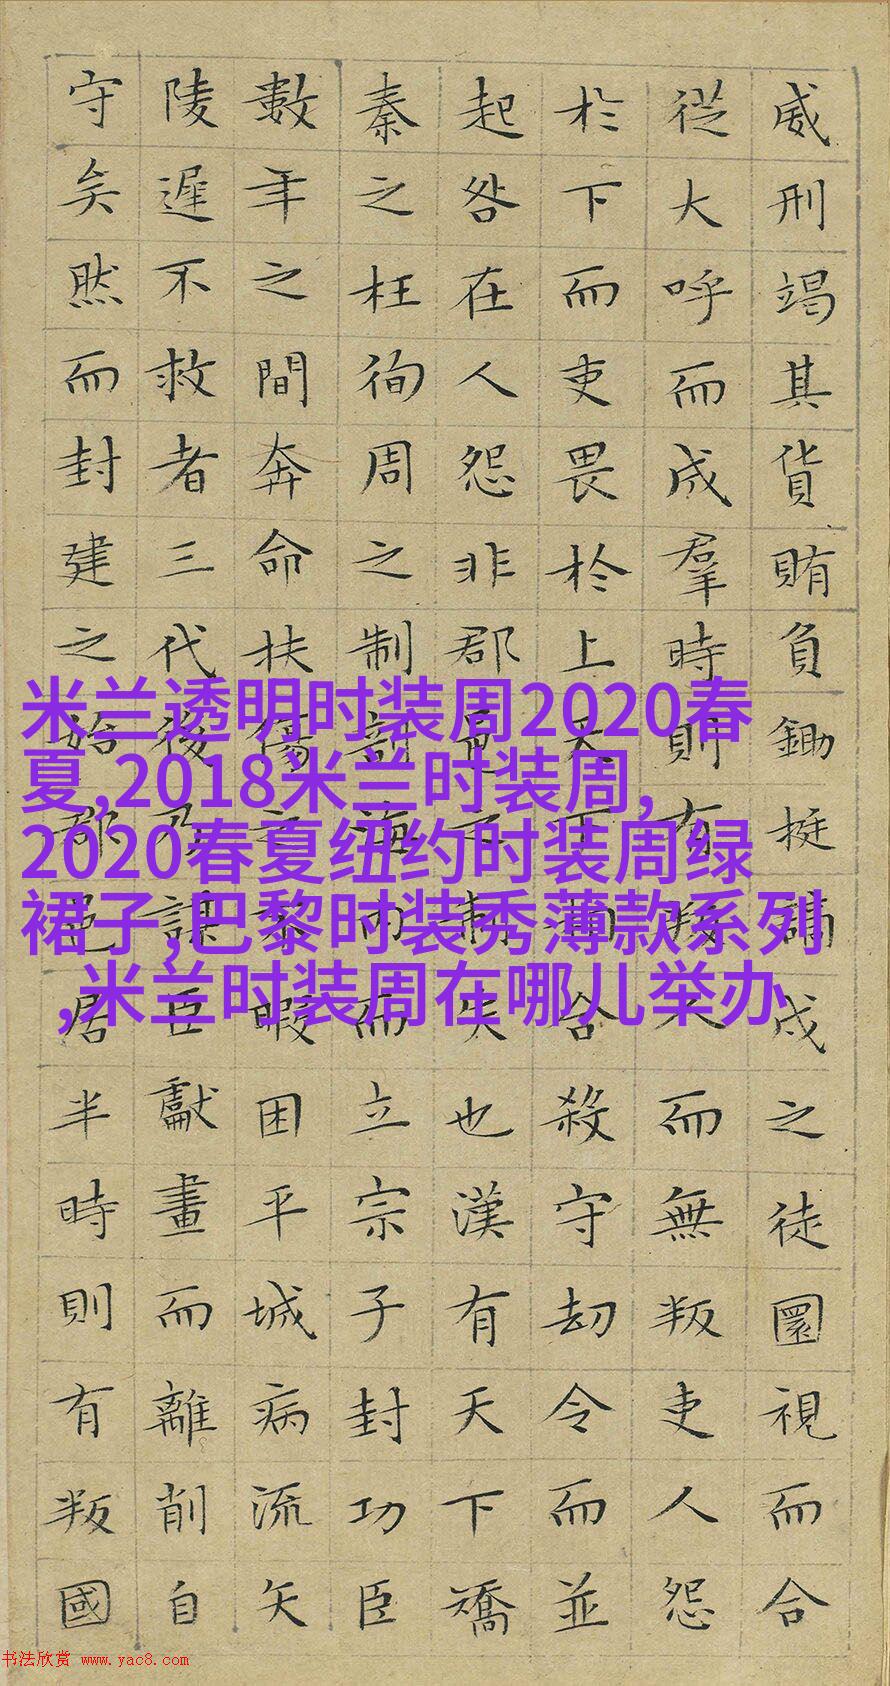 威刑竭其貨賄負鋤梃謫戍之徒圜視而合
從大呼而成羣時則有叛人而無叛吏人怨
於下而吏畏於上天下相合殺守劫令而並
起咎在人怨非郡邑之制失也漢有天下矯
秦之枉徇周之制剖海内而立宗子封功臣
數年之間奔命扶傷之不暇困平城病流矢
陵遲不救者三代後乃謀臣獻畫而離削自
守矣然而封建之始郡邑居半時則有叛國
米兰透明时装周2020春
夏,2018米兰时装周,
2020春夏纽约时装周绿
裙子,巴黎时装秀薄款系列
,米兰时装周在哪儿举办
书法欣赏 www.yac8.com